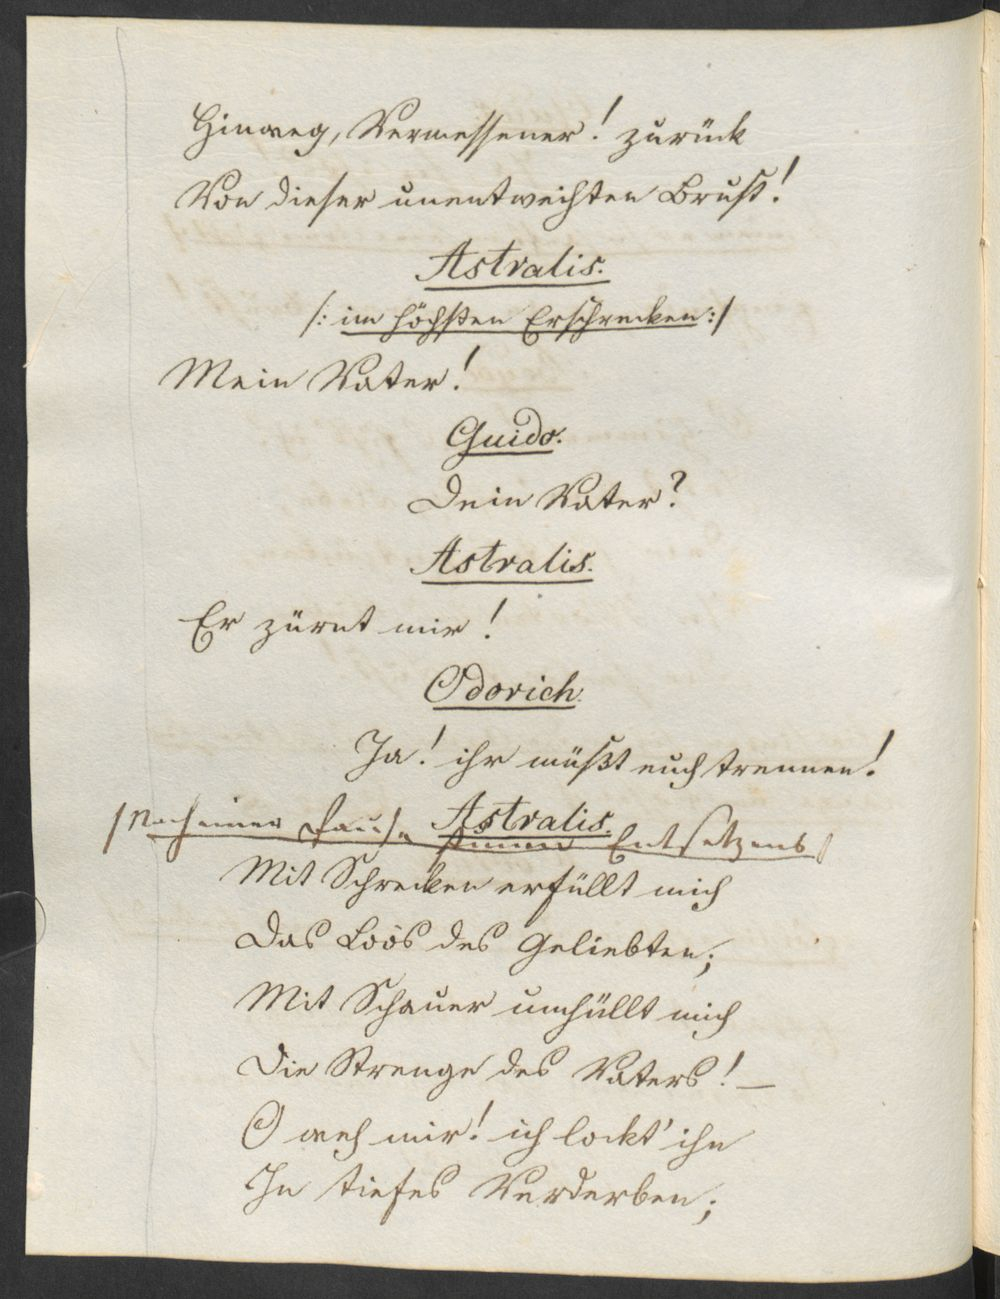 Hinweg, Vermessener! zurück
Von dieser unentweihten Brust!
Astralis.
/: im höchsten Erschrecken :/
Mein Vater!
Guido.
Dein Vater?
Astralis.
Er zürnt mir!
Odorich.
Ja! ihr müßt euch trennen!
Astralis.
/ Nach einer Pause stummen Entsetzens /
Mit Schrecken erfüllt mich
Das Loos des Geliebten;
Mit Schauer umhüllt mich
Die Strenge des Vaters! —
O weh mir! ich lockt' ihn
In tiefes Verderben;